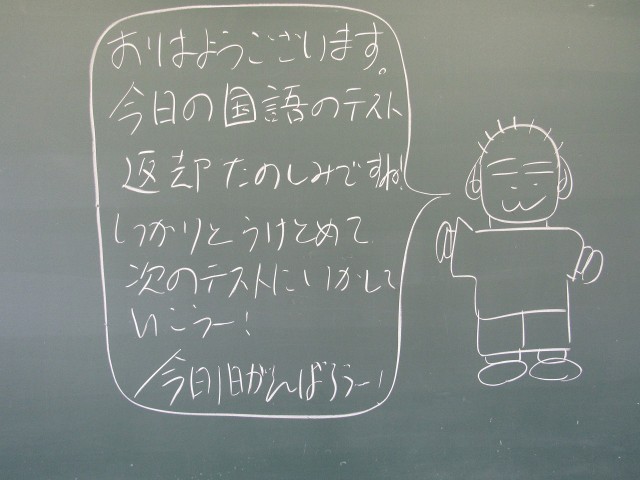 おはようございます。
今日の国語のテスト
返却たのしみですね!
しっかりとうけとめて
次のテストにいかして
いこうー!
今日1日がんばろうー!